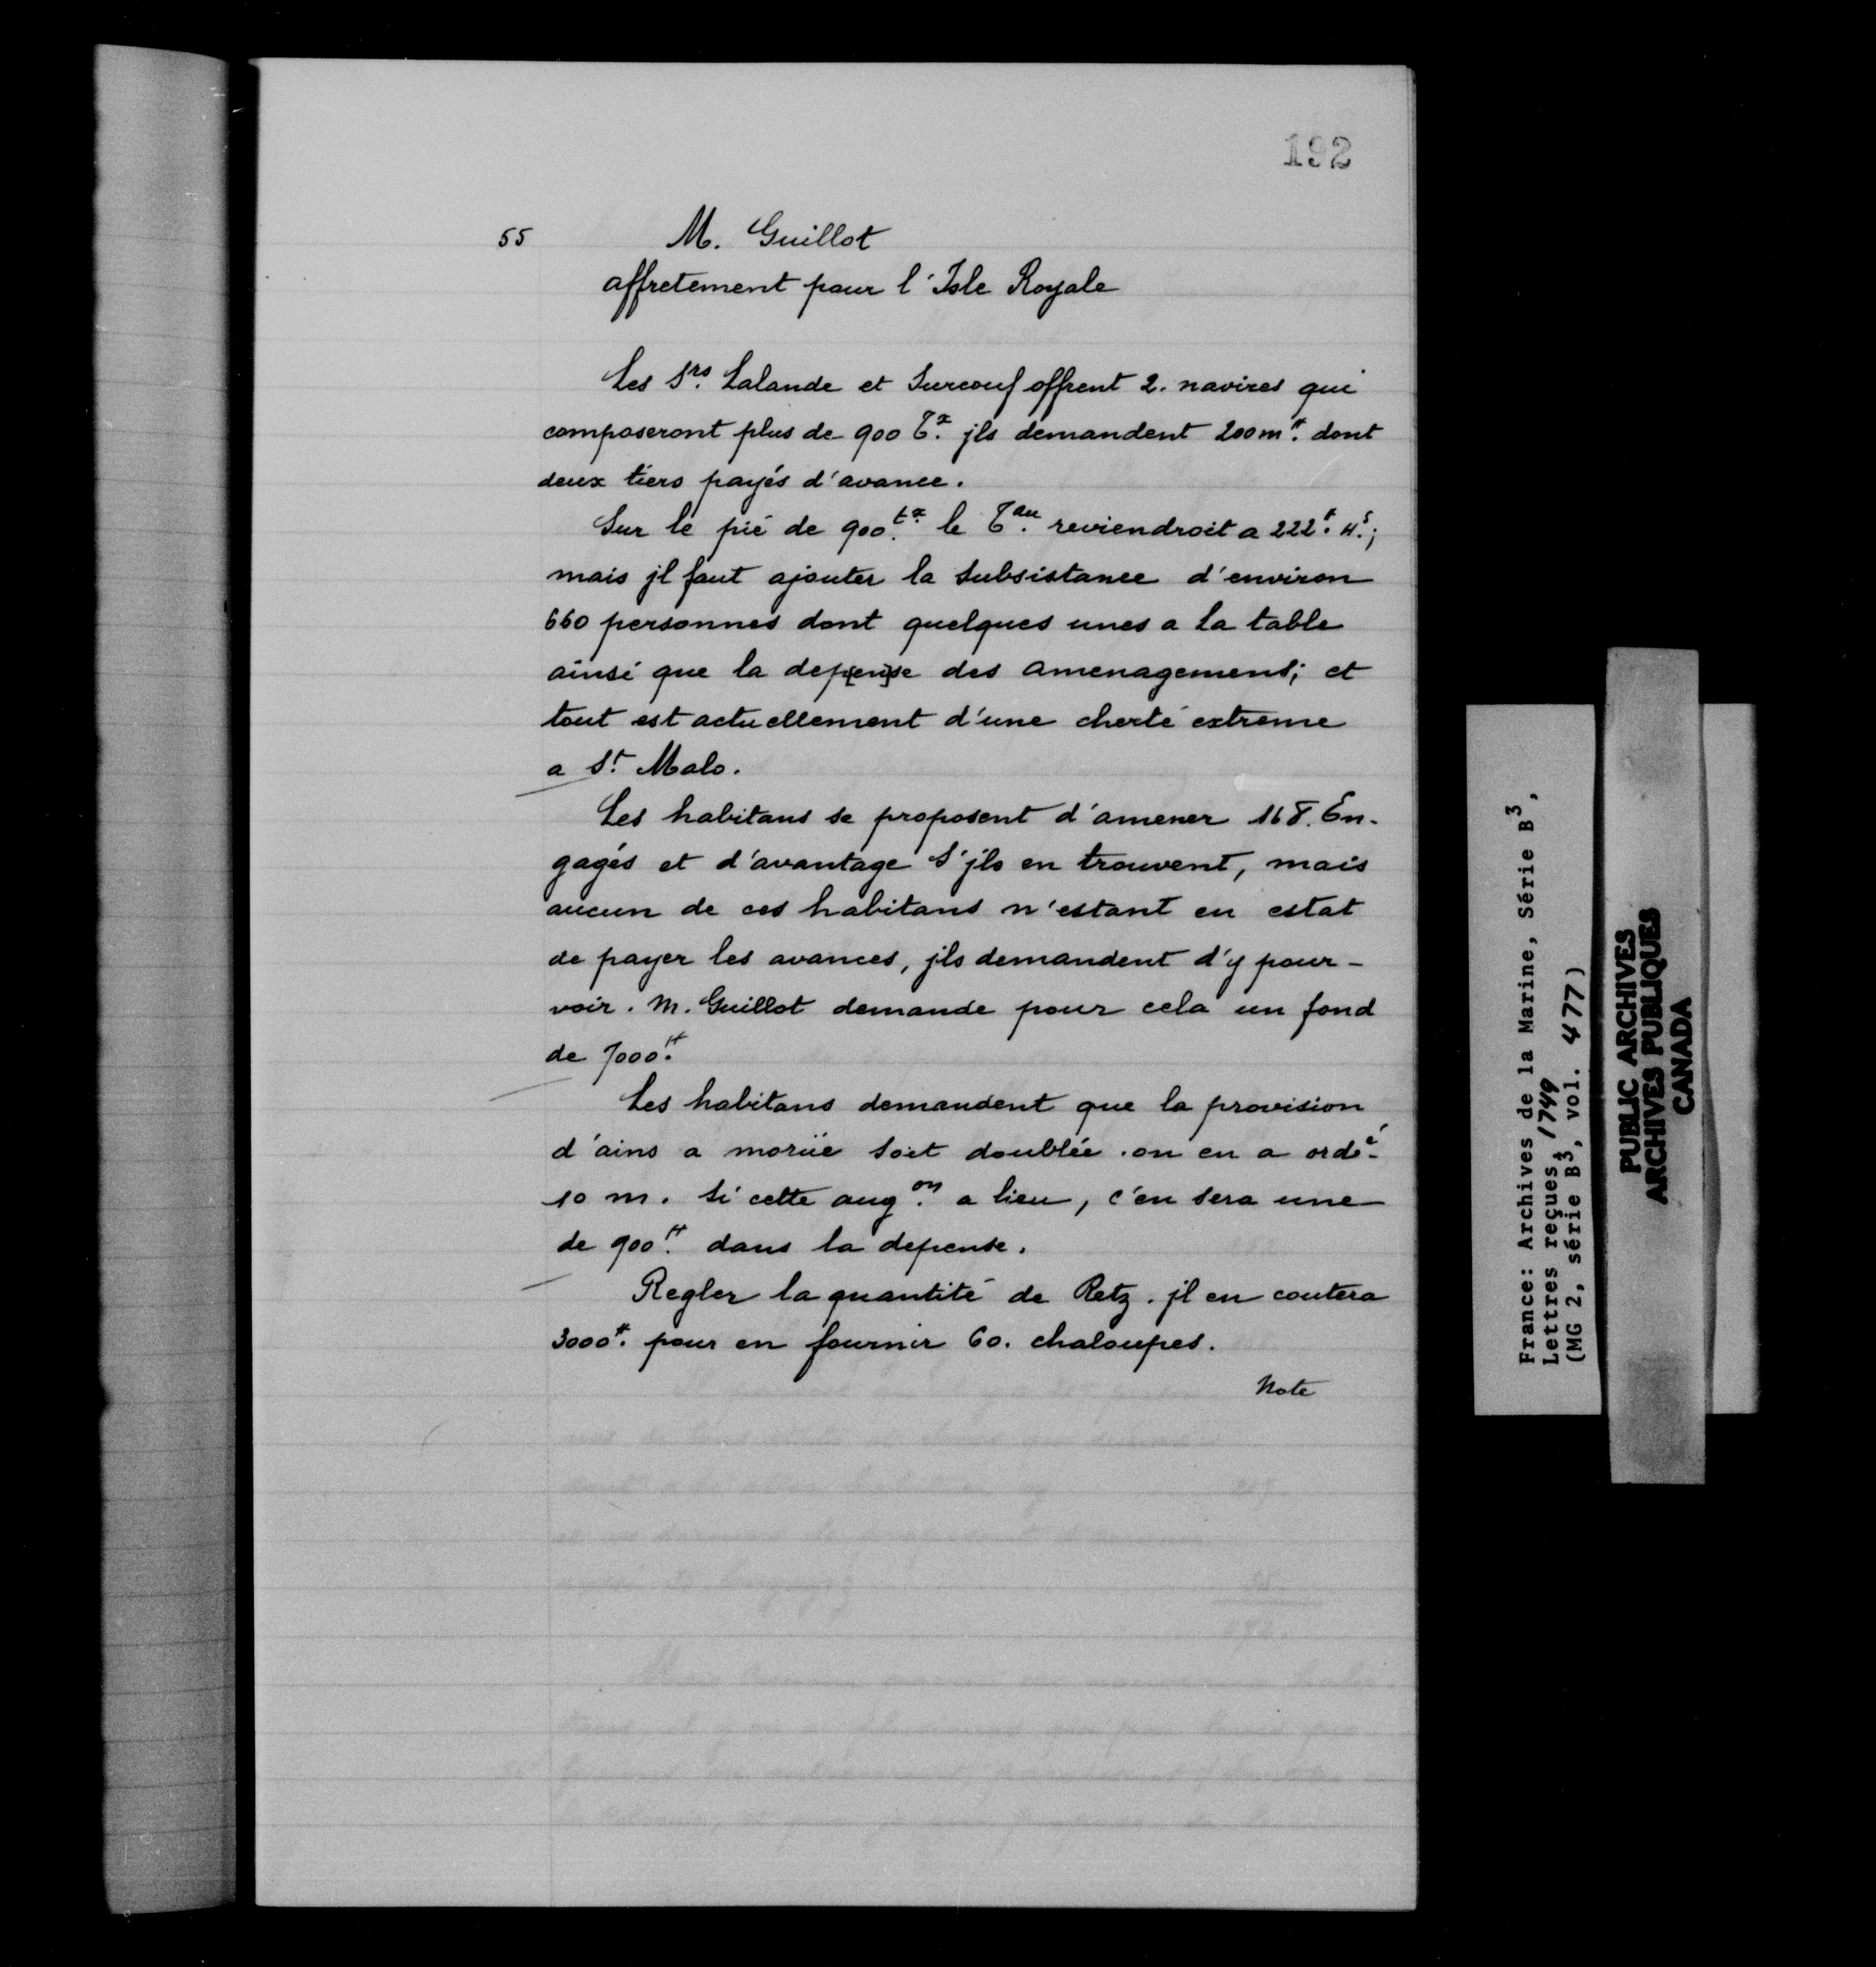 192
55
M. Guillot
affretement pour l'Isle Royale
Les Srs. Lalande et Surcouf offrent 2. navires qui
composeront plus de 900 Tx. jls demandent 200 m ₶. dont
deux tiers payés d'avance.
Sur le pié de 900. tx. le Tau. reviendroit a 222 ₶. 4 s.;
mais jl faut ajouter la Subsistance d'environ
660 personnes dont quelques unes a la table
ainsi que la dep[en]se des amenagemens; et
tout est actuellement d'une cherté extreme
a St. Malo.
Les habitans se proposent d'amener 168. En-
gagés et d'avantage S'jls en trouvent, mais
aucun de ces habitans n'estant en estat
de payer les avances, jls demandent d'y pour-
voir. M. Guillot demande pour cela un fond
de 7000 ₶.
Les habitans demandent que la provision
d'ains a moruë soit doublée. on en a ordé.
10 m. Si cette augon. a lieu, c'en sera une
de 900 ₶. dans la depense.
Regler la quantité de Retz. jl en coutera
3000 ₶. pour en fournir 60. chaloupes.
Note
France: Archives de la Marine, Série B3,
Lettres reçues, 1749
(MG 2, série B3, vol. 477)
PUBLIC ARCHIVES
ARCHIVES PUBLIQUES
CANADA